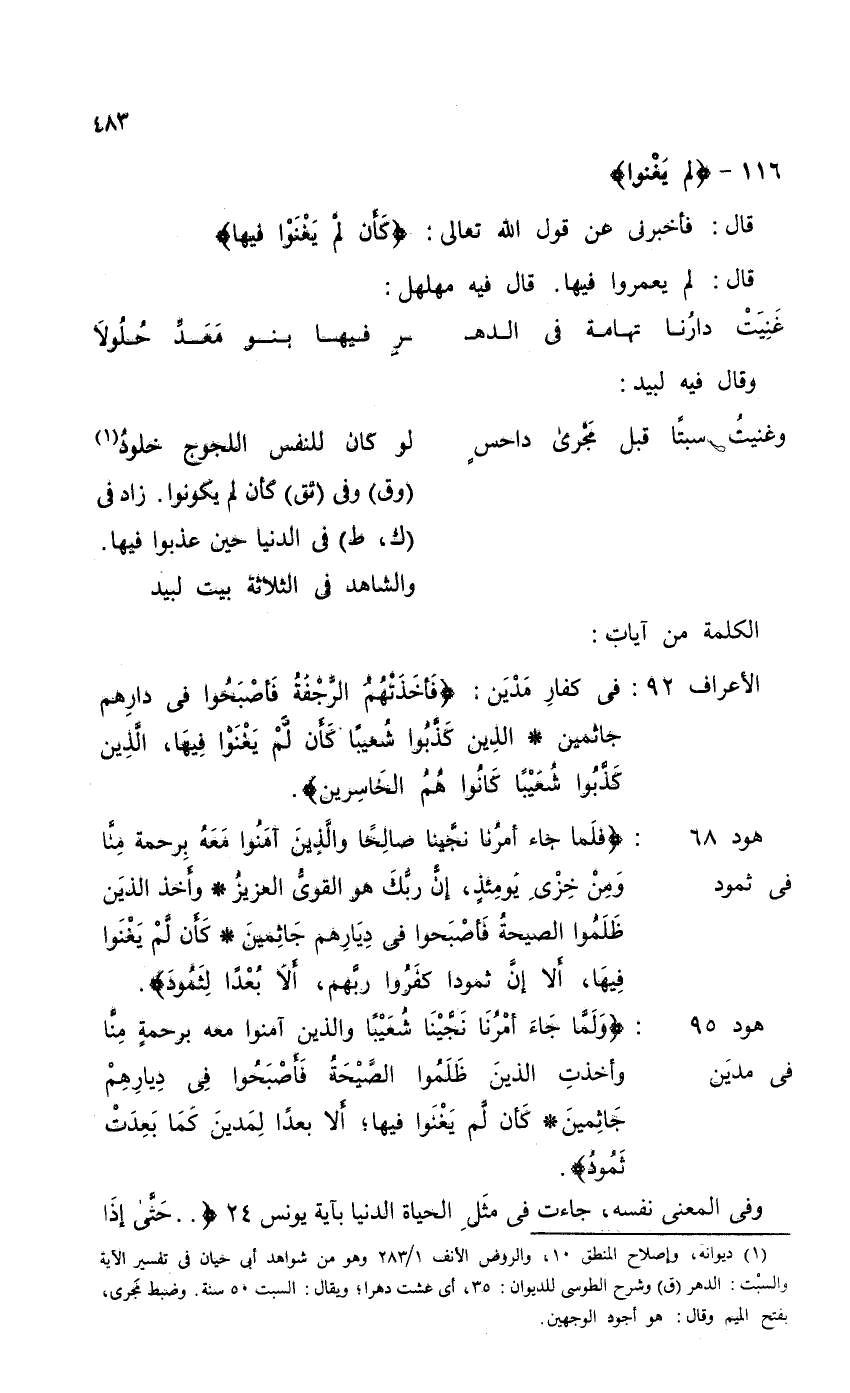 ٤٨٣
١١٦ - ﴿لم يَغْنوا﴾
قال : فأخبرنى عن قول الله تعالى : ﴿كَأَن لمْ يَغْنَوْا فيها﴾
قال : لم يعمروا فيها. قال فيه مهلهل :
غَنِيَتْ دارُنـا تهامـة فى الـدهـ ـرِ فيهـا بنـو مَعَـدٍّ حُـلُولاَ
وقال فيه لبيد :
وغنيتُ سبتًا قبل مَجْرىٰ داحسٍ لو كان للنفس اللجوج خلودُ(١)
(وق) وفى (تق) كأن لم يكونوا. زاد فى
(ك، ط) فى الدنيا حين عذبوا فيها.
والشاهد فى الثلاثة بيت لبيد
الكلمة من آيات :
الأعراف ٩٢ : فى كفارِ مَدْيَن : ﴿فَأخَذَتْهُمُ الرَّجْفَةُ فَأصْبَحُوا فى دارِهم
جاثمين * الذِين كَذَّبُوا شُعيبًا كَأَن لَّمْ يَغْنَوْا فِيهَا، الَّذِين
كَذَّبُوا شُعَيْبًا كَانُوا هُمُ الخَاسِرين﴾.
هود ٦٨ : ﴿فلَما جاء أمرُنا نجَّينا صالِحًا والَّذِينَ آمَنُوا مَعَهُ بِرحمة مِنَّا
فى ثمود وَمِنْ خِزْىِ يَومِئذٍ، إنَّ ربَّكَ هو القوىُّ العزيزُ * وأَخذ الذيَن
ظَلَمُوا الصيحةُ فَأصْبَحوا فى دِيَارِهم جَاثِمينَ * كَأَن لَّمْ يَغْنَوا
فِيهَا، أَلا إنَّ ثمودا كفَرُوا ربَّهم، أَلَا بُعْدًا لِثَمُودَ﴾.
هود ٩٥ : ﴿وَلَمَّا جَاءَ أمْرُنَا نَجَّيْنَا شُعَيْبًا والذين آمنوا معه برحمةٍ مِنَّا
فى مديَن وأخذتِ الذينَ ظَلَمُوا الصَّيْحَةُ فَأَصْبَحُوا فِى دِيارِهِمْ
جَاثِمينَ* كَأن لَّم يَغْنَوا فيها؛ أَلا بعدًا لِمَدينَ كَمَا بَعِدَتْ
ثَمُودُ﴾.
وفى المعنى نفسه، جاءت فى مثَلِ الحياة الدنيا بآية يونس ٢٤ ﴿..حَتَّىٰ إذَا
(١) ديوانه، وإصلاح المنطق ١٠، والروض الأنف ٢٨٣/١ وهو من شواهد أبى حيان فى تفسير الآية
والسبْت : الدهر (ق) وشرح الطوسى للديوان : ٣٥، أى عشت دهرا؛ ويقال : السبت ٥٠ سنة. وضبط مَجرى،
بفتح الميم وقال : هو أجود الوجهين.